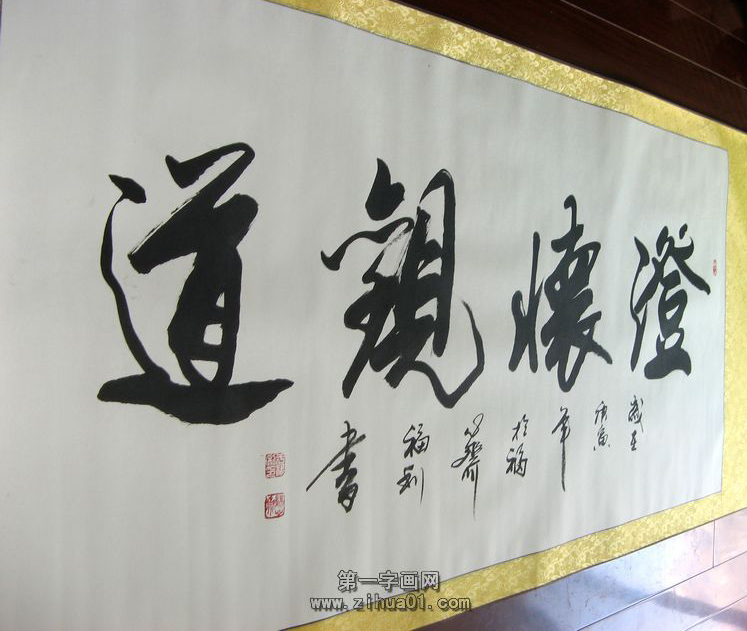 澄懷觀道
歲在
庚寅
年
於福
齋
福到
書
第一字画网
www.zihua01.com